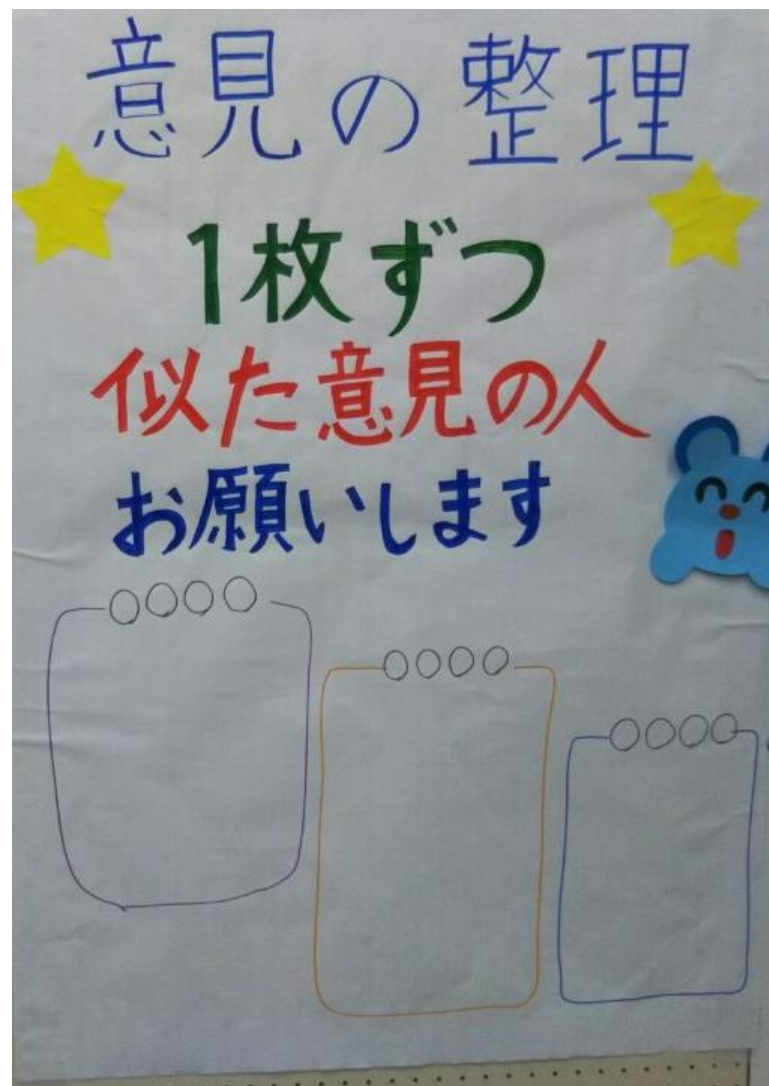 意見の整理
1枚ずつ
似た意見の人
お願いします
○○○○
○○○○
○○○○